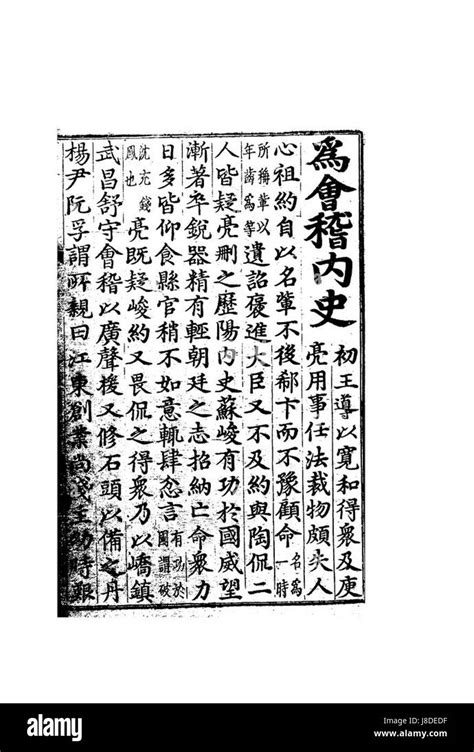 為會稽內史
初王導以寬和得衆及庾
亮用事任法裁物頗失人
心祖約自以名輩不後郗卞而不豫顧命名爲一時
所稱輩以年齒爲等遺詔褒進大臣又不及約與陶侃二
人皆疑亮刪之歷陽内史蘇峻有功於國威望
漸著卒銳器精有輕朝廷之志招納亡命衆力
日多皆仰食縣官稍不如意輒肆忿言有功於國謂破
沈充錢鳳也亮既疑峻約又畏侃之得衆乃以嶠鎮
武昌舒守會稽以廣聲援又修石頭以備之丹
楊尹阮孚謂所親曰江東創業尚淺主幼時艱
alamy
Image ID: J8DEDF
www.alamy.com